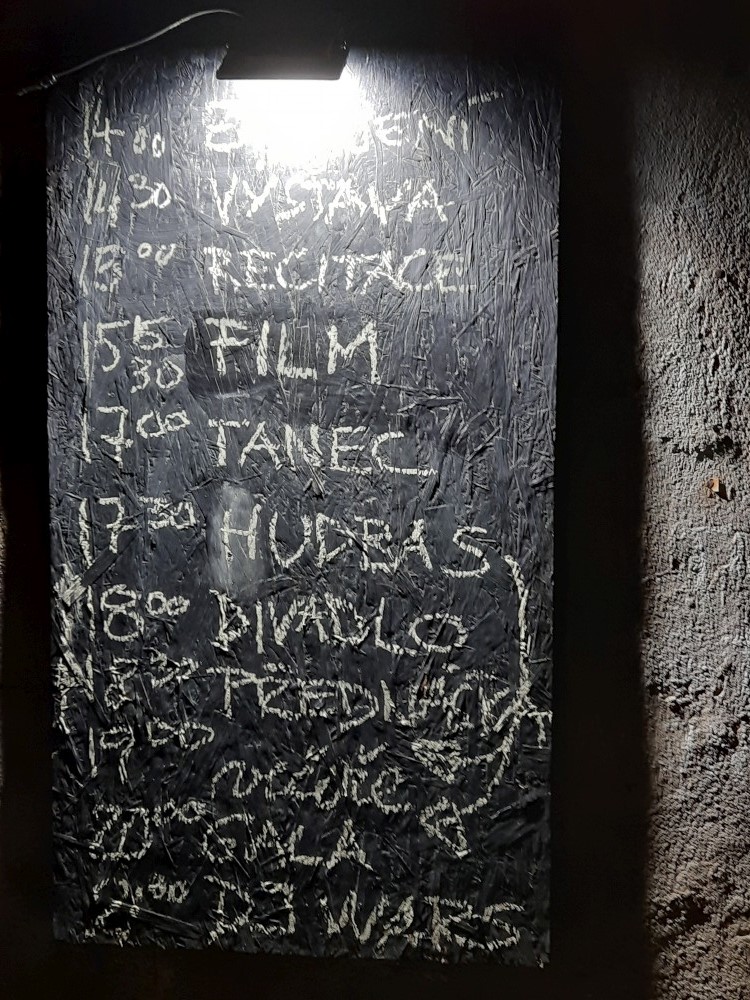 14 00
14 30 VÝSTAVA
15 00 RECITACE
15 15 30 FILM
17 00 TANEC
17 30 HUDBA S
18 00 DIVADLO
18 30 PŘEDNÁŠKY
19 00
večeře
20 00 GALA
DJ WARS